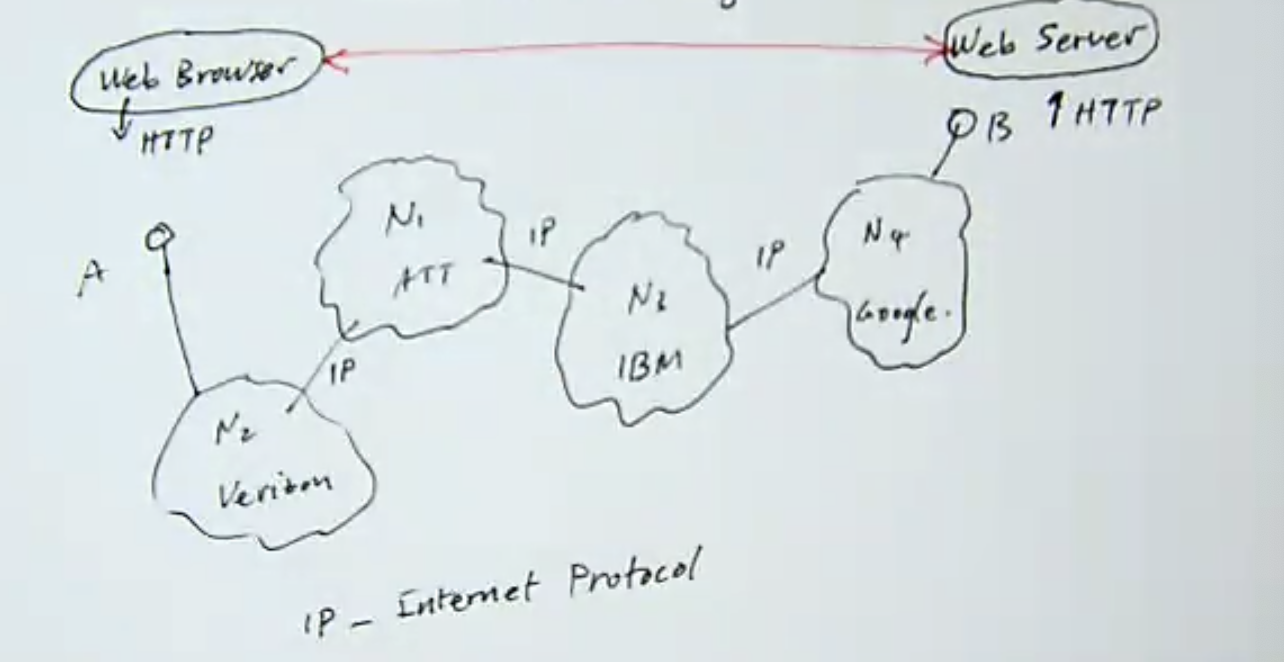 Web Browser
Web Server
HTTP
B
HTTP
A
N1
ATT
IP
IP
N4
Google.
IBM
IP
N2
Verizon
IP - Internet Protocol